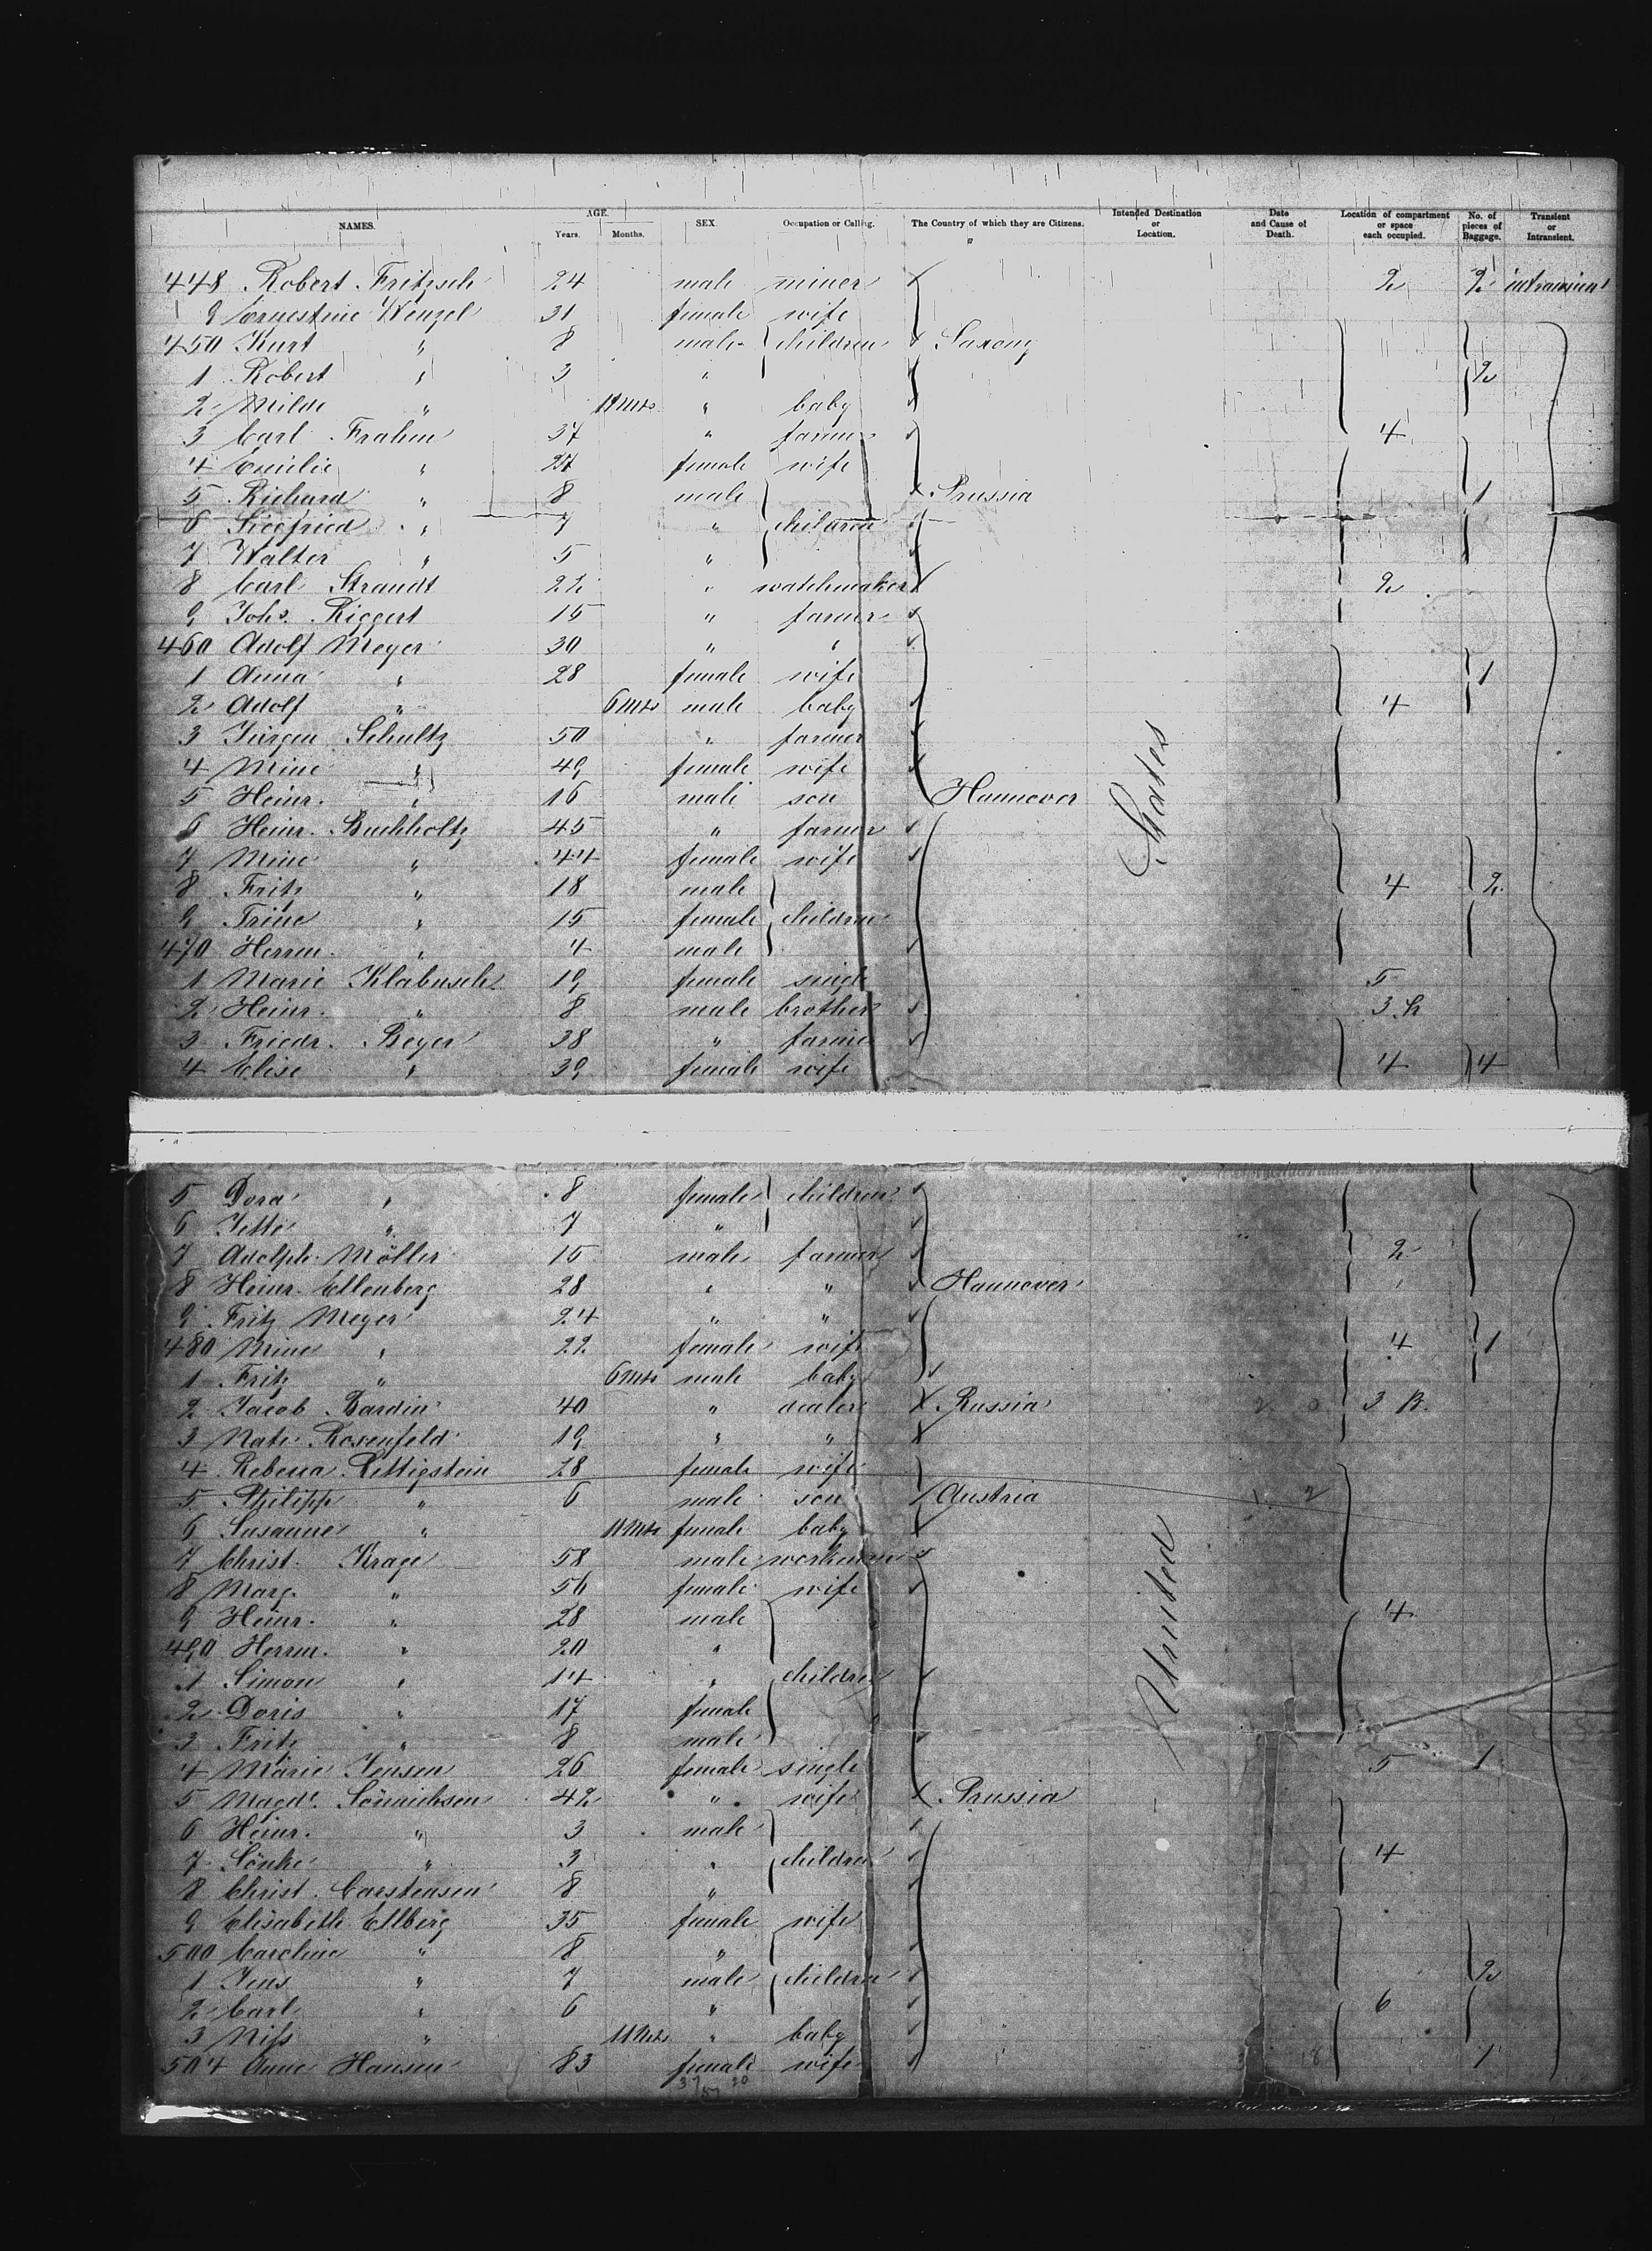 NAMES. AGE. Years. Months. SEX. Occupation or Calling. The Country of which they are Citizens. Intended Destination or Location. Date and Cause of Death. Location of compartment or space each occupied. No. of pieces of Baggage. Transient or Intransient.
448 Robert Fritzsch 24 male miner 2 2 intransient
9 Ernestine Wenzel 31 female wife
450 Kurt " 8 male children Saxony
1 Robert " 3 " 2
2 Milde " 11 Mts " baby
3 Carl Frahm 37 " farmer 4
4 Emilie " 27 female wife
5 Richard " 8 male Prussia 1
6 Siegfried " 7 " children
7 Walter " 5 "
8 Carl Strandt 22 " watchmaker 2
9 Johs. Riggert 15 " farmer
460 Adolf Meyer 30 " "
1 Anna " 28 female wife 1
2 Adolf " 6 Mts male baby 4
3 Jürgen Schultz 50 " farmer
4 Mine " 49 female wife
5 Heinr. " 16 male son Hannover States
6 Heinr. Buchholtz 45 " farmer
7 Mine " 44 female wife
8 Fritz " 18 male 4 2
9 Trine " 15 female children
470 Herrm. " 4 male
1 Marie Klabusch 19 female single 5
2 Heinr. " 8 male brother 3.
3 Friedr. Beyer 38 " farmer
4 Elise " 39 female wife 4 4
5 Dora " 8 female children
6 Jette " 7 "
7 Adolph Möller 15 male farmer 2
8 Heinr. Ellenberg 28 " " Hannover
9 Fritz Meyer 24 " "
480 Mine " 22 female wife 4 1
1 Fritz " 6 Mts male baby
2 Jacob Bardin 40 " dealer Russia 3 B.
3 Nate Rosenfeld 19 " "
4 Rebecca Rettigstein 28 female wife
5 Philipp " 6 male son Austria
6 Susanne " 11 Mts female baby
7 Christ. Krage 58 male workman
8 Marg. " 56 female wife United
9 Heinr. " 28 male 4
490 Herrm. " 20 "
1 Simon " 14 " children
2 Doris " 17 female
3 Fritz " 8 male
4 Marie Jensen 26 female single 5 1
5 Magd. Sönnichsen 42 " wife Prussia
6 Heinr. " 3 male
7 Sönke " 3 " children 4
8 Christ. Carstensen 8 "
9 Elisabeth Ellberg 35 female wife
500 Caroline " 8 "
1 Jens " 7 male children 2
2 Carl " 6 " 6
3 Niss " 11 Mts " baby
504 Anne Hansen 83 female wife 1
37 20
57